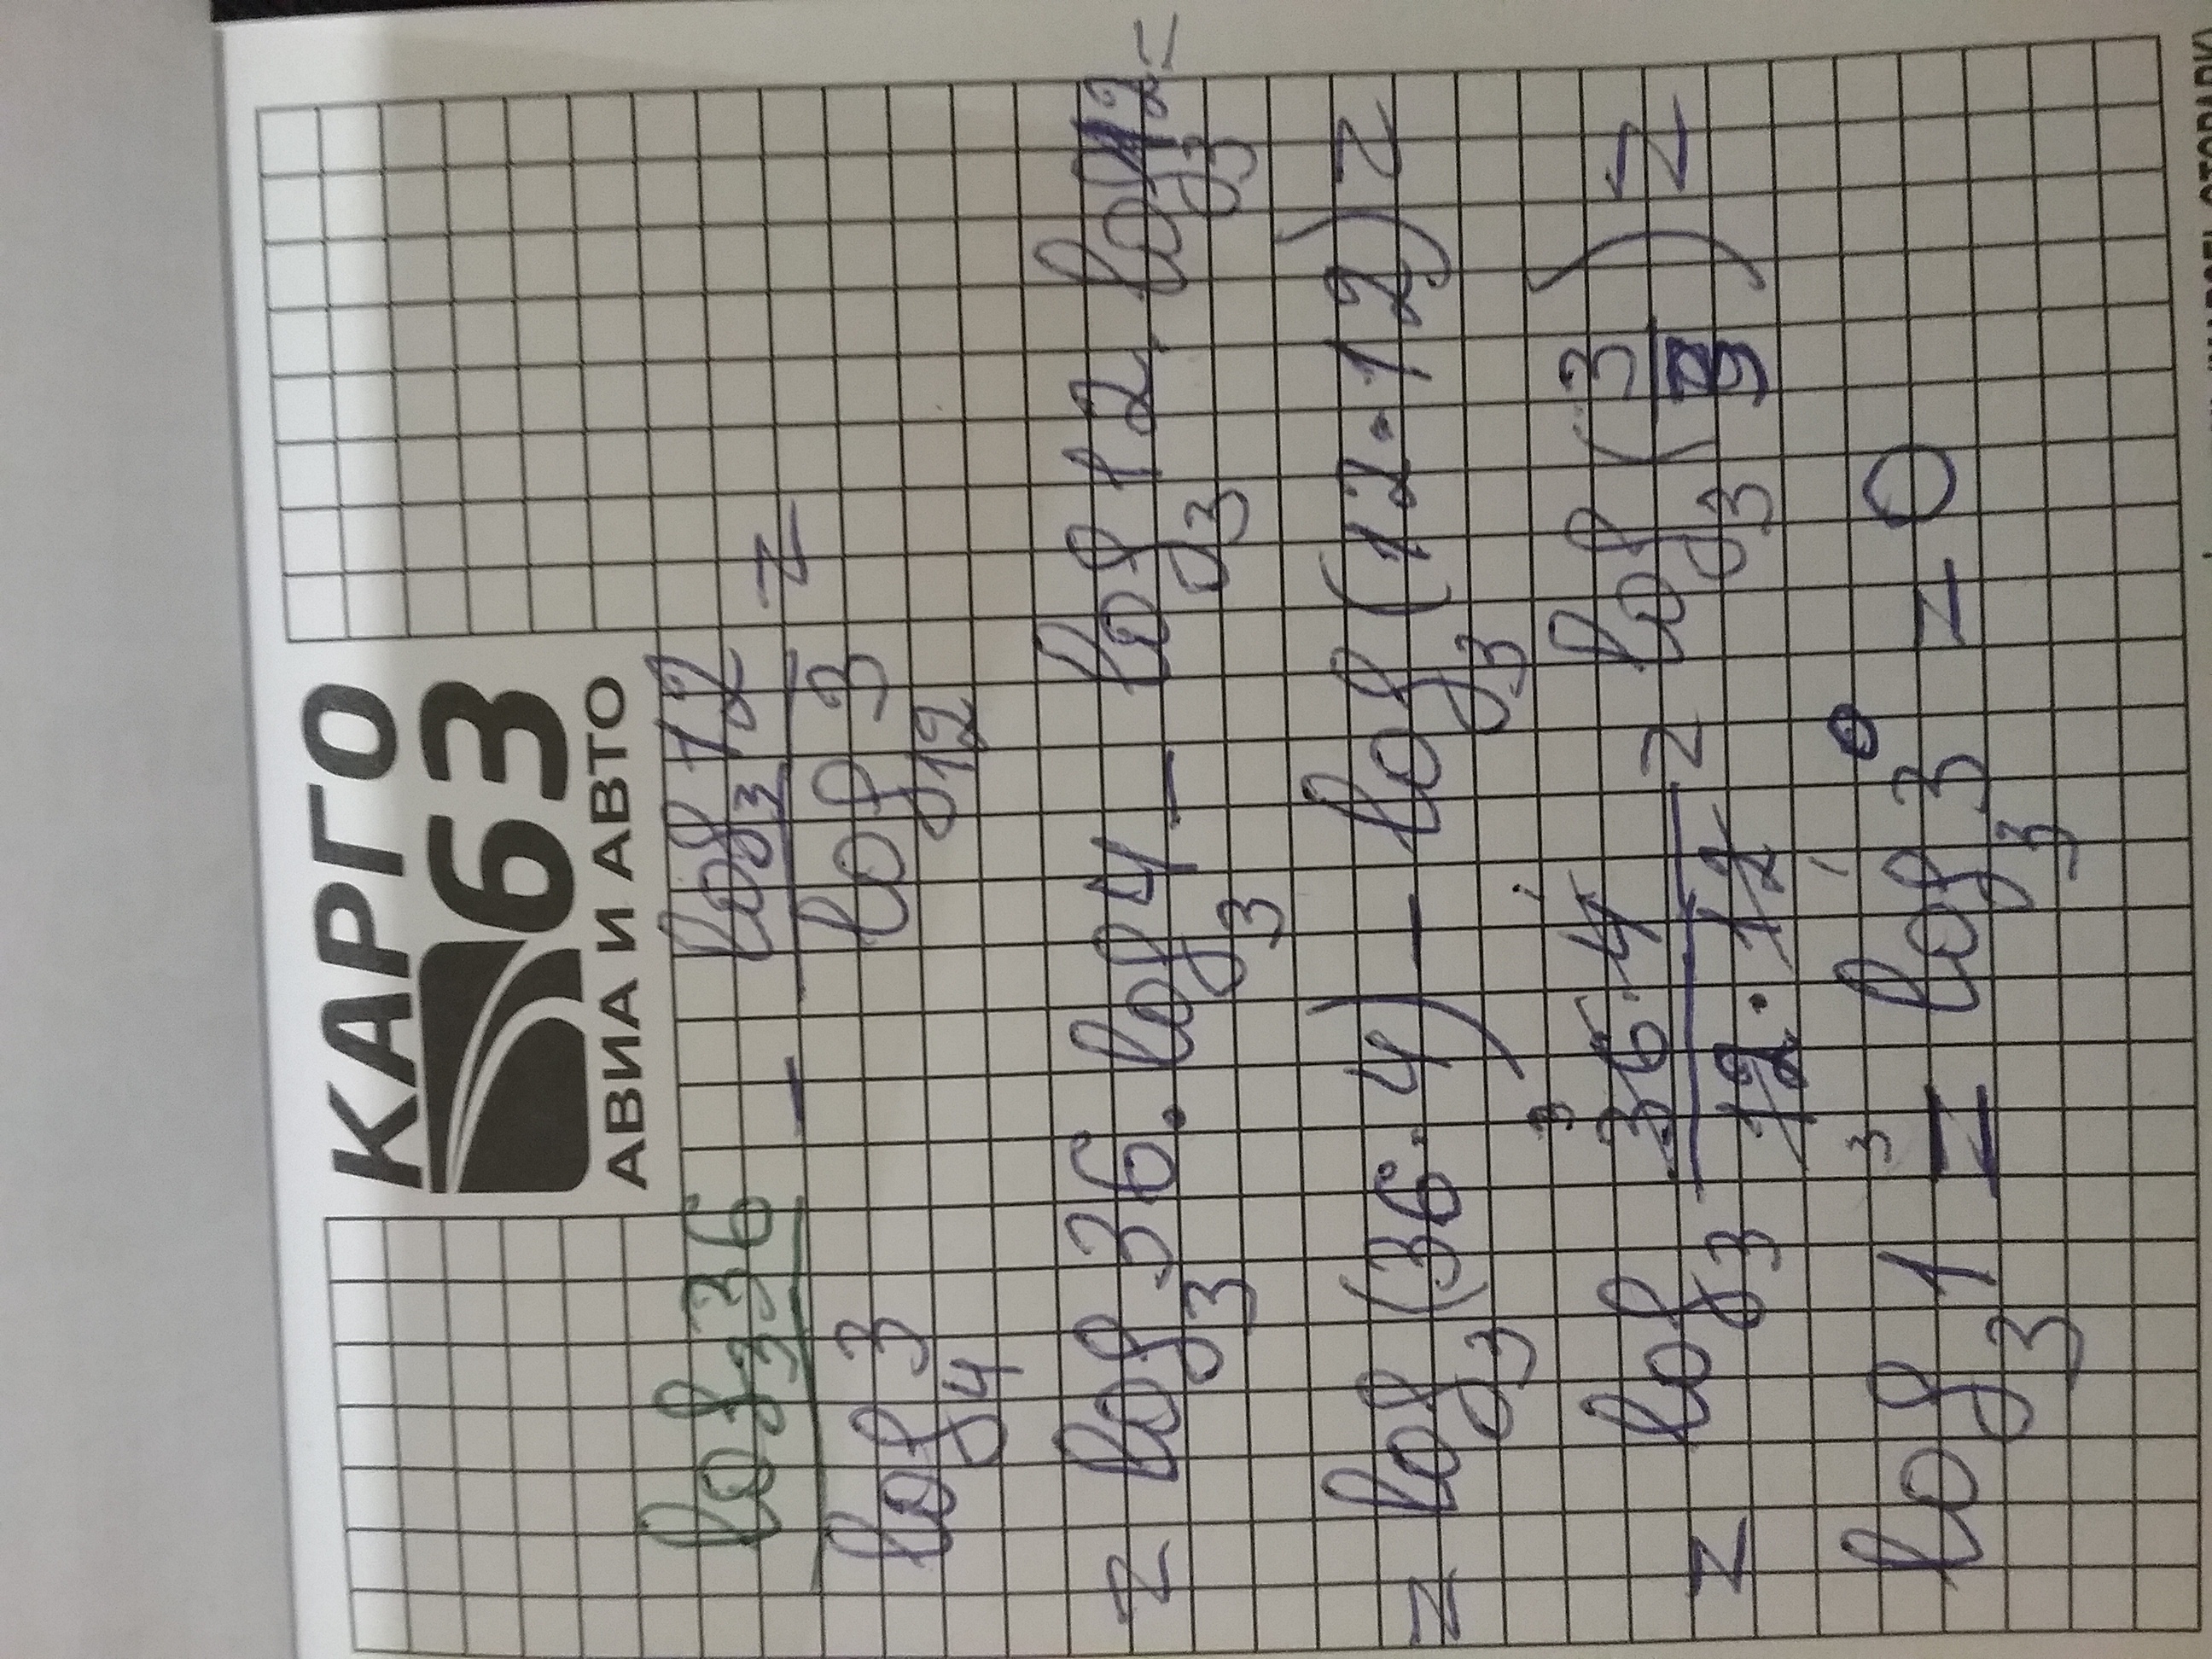 КАРГО
63
АВИА И АВТО
log₃36 / log₄3 − log₃12 / log₁₂3 =
= log₃36 · log₃4 − log₃12 · log₃12 =
= log₃(36 · 4) − log₃(12 · 12) =
= log₃ (36 · 4) / (12 · 12) = log₃(3/3) =
log₃1 = log₃3⁰ = 0